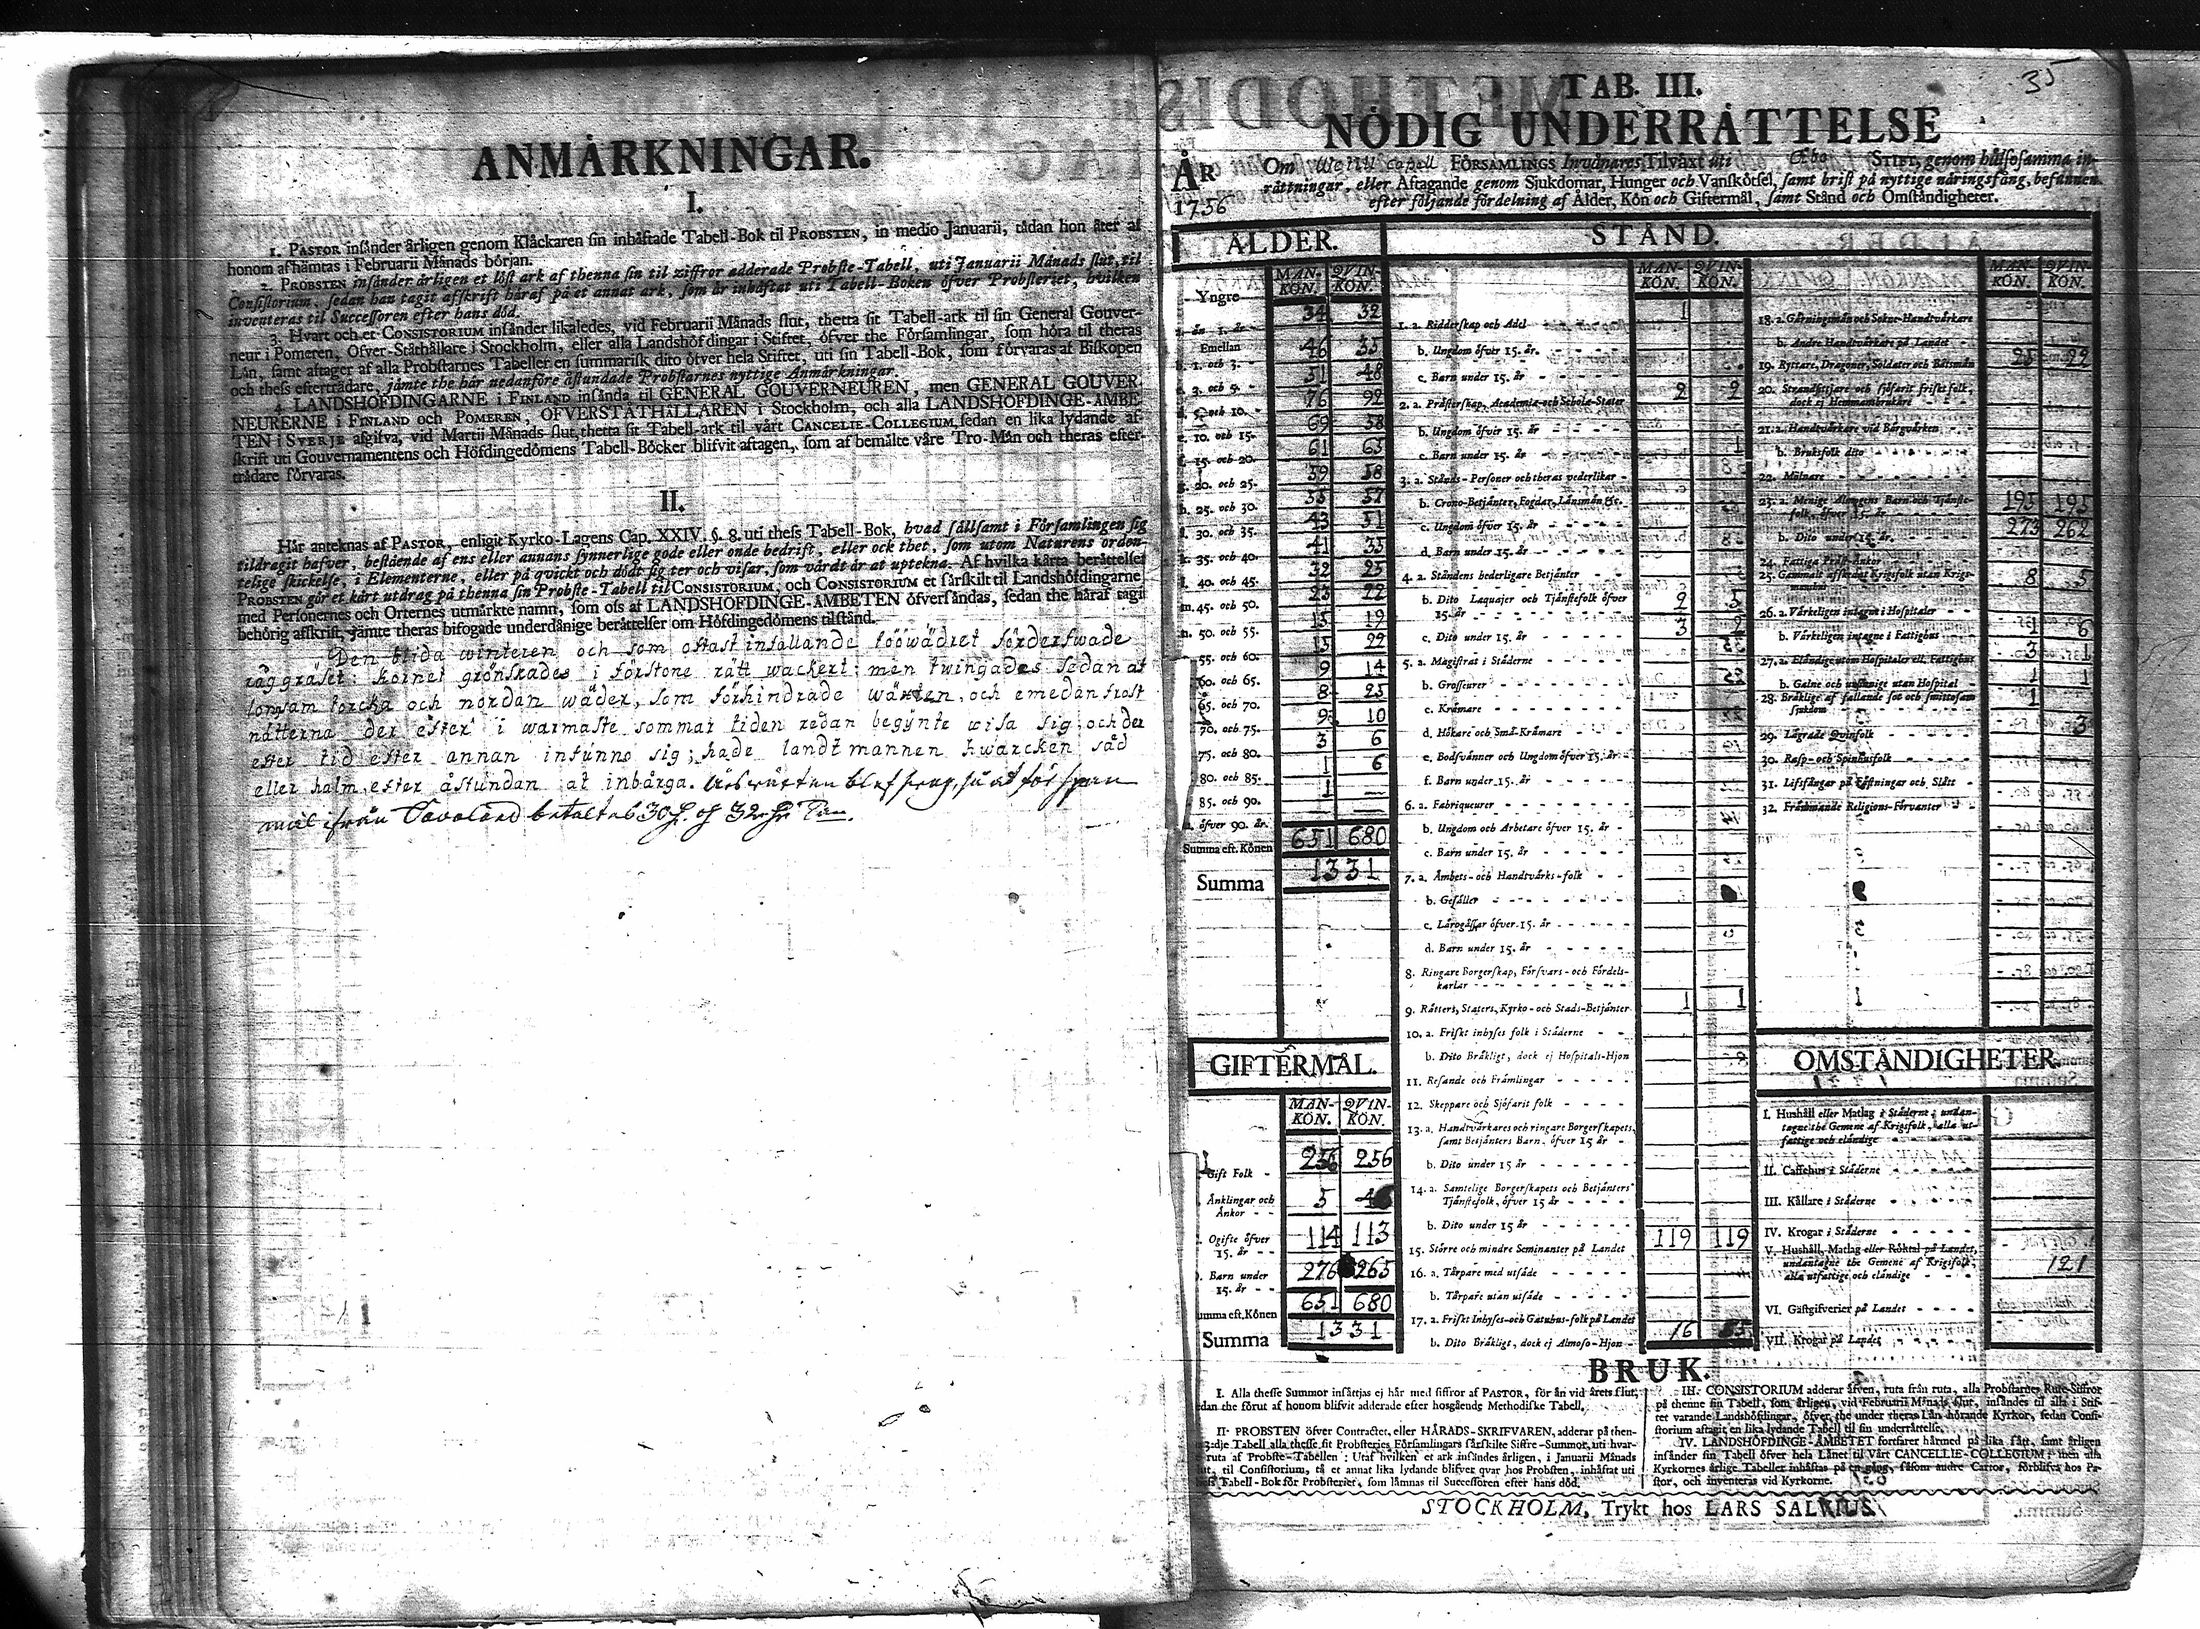 ANMÄRKNINGAR.
I.
1. PASTOR insänder årligen genom Klåckaren sin inhäftade Tabell-Bok til PROBSTEN, in medio Januarii, tådan hon åter af
honom afhämtas i Februarii Månads början.
2. PROBSTEN insänder årligen et löst ark af thenna sin til ziffror adderade Probste-Tabell, uti Januarii Månads slut, til
Consistorium, sedan han tagit afskrift häraf på et annat ark, som är inhäftat uti Tabell-Boken öfver Probsteriet, hvilken
inventeras til Successoren efter hans död.
3. Hvart och et CONSISTORIUM insänder likaledes, vid Februarii Månads slut, thetta sit Tabell-ark til sin General Gouver-
neur i Pomeren, Öfver-Ståthållare i Stockholm, eller alla Landshöfdingar i Stiftet, öfver the Församlingar, som höra til theras
Län, samt aftager af alla Probstarnes Tabeller en summarisk dito öfver hela Stiftet, uti sin Tabell-Bok, som förvaras af Biskopen
och thess efterträdare, jämte the här nedanföre åstundade Probstarnes nyttige Anmärkningar.
4. LANDSHÖFDINGARNE i FINLAND insända til GENERAL GOUVERNEUREN, men GENERAL GOUVER-
NEURERNE i FINLAND och POMEREN, ÖFVERSTÅTHÅLLAREN i Stockholm, och alla LANDSHÖFDINGE-ÄMBE-
TEN i SVERJE afgifva, vid Martii Månads slut, thetta sit Tabell-ark til vårt CANCELIE-COLLEGIUM, sedan en lika lydande af-
skrift uti Gouvernamentens och Höfdingedömens Tabell-Böcker blifvit aftagen, som af bemälte våre Tro-Män och theras efter-
trädare förvaras.
II.
Här anteknas af PASTOR, enligit Kyrko-Lagens Cap. XXIV. §. 8. uti thess Tabell-Bok, hvad sällsamt i Församlingen sig
tildragit hafver, bestående af ens eller annans synnerlige gode eller onde bedrift, eller ock thet, som utom Naturens orden-
telige skickelse, i Elementerne, eller på qvickt och dödt sig ter och visar, som värdt är at uptekna. Af hvilka kårta berättelser
PROBSTEN gör et kårt utdrag på thenna sin Probste-Tabell til CONSISTORIUM, och CONSISTORIUM et särskilt til Landshöfdingarne,
med Personernes och Orternes utmärkte namn, som oss af LANDSHÖFDINGE-ÄMBETEN öfversändas, sedan the häraf tagit
behörig afskrift, jämte theras bifogade underdånige berättelser om Höfdingedömens tilstånd.
Den blida winteren och som oftast infallande tööwädret förderfwade
råggräset: kornet grönskades i förstone rätt wackert: men twingades sedan af
långsam torcka och nordan wäder, som förhindrade wäxten, och emedan frost
nätterna der efter i warmaste sommar tiden redan begynte wisa sig, och der
efter tid efter annan infunno sig; hade landtmannen hwarcken säd
eller halm efter åstundan at inbärga.
från Savolaxd betaltes 30
35
TAB. III.
NÖDIG UNDERRÄTTELSE
ÅR 1756
Om capell FÖRSAMLINGS Invånares Tilväxt uti Åbo STIFT, genom hälsosamma in-
rättningar, eller Aftagande genom Sjukdomar, Hunger och Vanskötsel, samt brist på nyttige näringsfång, befunnen
efter följande fördelning af Ålder, Kön och Giftermål, samt Stånd och Omständigheter.
ÅLDER.
MAN-KÖN. QVIN-KÖN.
Yngre än 1. år 34 32
Emellan b. 1. och 3. 46 35
c. 3. och 5. 51 48
d. 5. och 10. 76 92
e. 10. och 15. 69 58
f. 15. och 20. 61 63
g. 20. och 25. 39 58
h. 25. och 30. 35 57
i. 30. och 35. 43 51
k. 35. och 40. 41 35
l. 40. och 45. 32 25
m. 45. och 50. 23 22
n. 50. och 55. 15 19
55. och 60. 15 22
60. och 65. 9 14
65. och 70. 8 25
70. och 75. 9 10
75. och 80. 3 6
80. och 85. 1 6
85. och 90. 1 —
öfver 90. år.
Summa eft. Könen 651 680
Summa 1331
GIFTERMÅL.
MAN-KÖN. QVIN-KÖN.
Gift Folk 256 256
Änklingar och Änkor 5 46
Ogifte öfver 15. år 114 113
Barn under 15. år 276 265
Summa eft. Könen 651 680
Summa 1331
STÅND.
MAN-KÖN. QVIN-KÖN.
1. a. Ridderskap och Adel 1
b. Ungdom öfver 15. år.
c. Barn under 15. år
2. a. Prästerskap, Academiæ och Scholæ-Stater 2 2
b. Ungdom öfver 15. år
c. Barn under 15. år 1
3. a. Stånds-Personer och theras vederlikar
b. Crono-Betjänter, Fogdar, Länsmän &c.
c. Ungdom öfver 15. år
d. Barn under 15. år
4. a. Ståndens hederligare Betjänter
b. Dito Laquajer och Tjänstefolk öfver 15. år 2 5
c. Dito under 15. år 3 2
5. a. Magistrat i Städerne
b. Grosseurer
c. Krämare
d. Hökare och Små-Krämare
e. Bodsvänner och Ungdom öfver 15. år
f. Barn under 15. år
6. a. Fabriqueurer
b. Ungdom och Arbetare öfver 15. år
c. Barn under 15. år
7. a. Ämbets- och Handtvärks-folk
b. Gesäller
c. Lärogåssar öfver 15. år
d. Barn under 15. år
8. Ringare Borgerskap, Försvars- och Fördels-karlar
9. Rätters, Staters, Kyrko- och Stads-Betjänter 1 1
10. a. Friskt inhyses folk i Städerne
b. Dito Bräkligt, dock ej Hospitals-Hjon
11. Resande och Främlingar
12. Skeppare och Sjöfarit folk
13. a. Handtvärkares och ringare Borgerskapets, samt Betjänters Barn, öfver 15 år
b. Dito under 15 år
14. a. Samtelige Borgerskapets och Betjänters Tjänstefolk, öfver 15 år
b. Dito under 15 år
15. Större och mindre Seminanter på Landet 119 119
16. a. Tårpare med utsäde
b. Tårpare utan utsäde
17. a. Friskt Inhyses- och Gatuhus-folk på Landet
b. Dito Bräkligt, dock ej Almoso-Hjon 16 55
MAN-KÖN. QVIN-KÖN.
18. a. Gärningsmän och Sokne-Handtvärkare
b. Andre Handtvärkare på Landet
19. Ryttare, Dragoner, Soldater och Båtsmän 25 22
20. Strandsittjare och sjöfarit friskt folk, dock ej Hemmansbrukare
21. a. Handtvärkare vid Bärgvärken
b. Bruksfolk dito
22. Mölnare
23. a. Menige Almogens Barn och Tjänste-folk, öfver 15. år 195 195
b. Dito under 15. år. 273 262
24. Fattiga Präst-Änkor
25. Gammalt afskedat Krigsfolk utan Krigs- 8 5
26. a. Värkeligen intagne i Hospitaler
b. Värkeligen intagne i Fattighus 1 6
27. a. Eländige utom Hospitaler ell. Fattighus 3 1
b. Galne och utan Hospital 1 1
28. Bräklige af fallande sot och smittosam sjukdom 1
29. Lägrade Qvinfolk 3
30. Rasp- och Spinhusfolk
31. Lifsfångar på Fästningar och Slått
32. Främmande Religions-Förvanter
OMSTÄNDIGHETER.
I. Hushåll eller Matlag i Städerne, undan-tagne the Gemene af Krigsfolk, alla ut-fattige och eländige
II. Caffehus i Städerne
III. Källare i Städerne
IV. Krogar i Städerne
V. Hushåll, Matlag eller Röktal på Landet, undantagne the Gemene af Krigsfolk, alla utfattige och eländige 121
VI. Gästgifverier på Landet
VII. Krogar på Landet
BRUK.
I. Alla thesse Summor insättjas ej här med siffror af PASTOR, för än vid årets slut,
sedan the förut af honom blifvit adderade efter hosgående Methodiske Tabell.
II. PROBSTEN öfver Contractet, eller HÄRADS-SKRIFVAREN, adderar på then-
3:dje Tabell alla thesse sit Probsteries Församlingars särskilte Siffre-Summor, uti hvar-
ruta af Probste-Tabellen: Utaf hvilken et ark insändes årligen, i Januarii Månads
slut, til Consistorium, tå et annat lika lydande blifver qvar hos Probsten, inhäftat uti
thess Tabell-Bok för Probsteriet, som lämnas til Successoren efter hans död.
III. CONSISTORIUM adderar äfven, ruta från ruta, alla Probstarnes Rute-Siffror
på thenne sin Tabell, som årligen, vid Februarii Månads slut, insändes til alla i Stif-
tet varande Landshöfdingar, öfver the under theras Län hörande Kyrkor, sedan Consi-
storium aftagit en lika lydande Tabell til sin underrättelse.
IV. LANDSHÖFDINGE-ÄMBETET fortfarer härmed på lika sätt, samt årligen
insänder sin Tabell öfver hela Länet til Vårt CANCELLIE-COLLEGIUM; men alla
Kyrkornes årlige Tabeller inhäftas på en gång, såsom andre Cartor, förblifva hos Pa-
stor, och inventeras vid Kyrkorne.
STOCKHOLM, Trykt hos LARS SALVIUS.